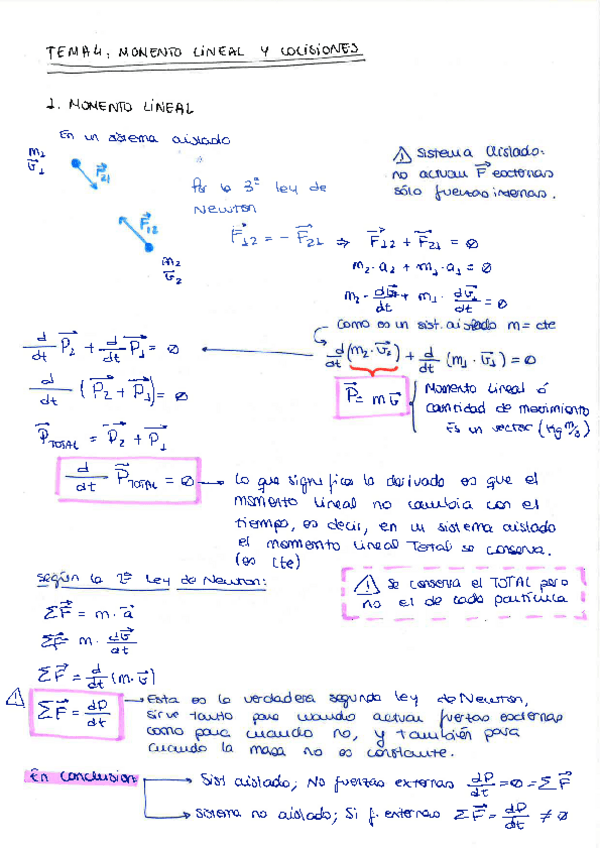 TEMA 4: MOMENTO LINEAL Y COLISIONES
1. MOMENTO LINEAL
En un sistema aislado
m₁
v⃗₁
F⃗₂₁
F⃗₁₂
m₂
v⃗₂
⚠ Sistema aislado:
no actuan F⃗ externas
sólo fuerzas internas.
Por la 3ª ley de
Newton
F⃗₁₂ = - F⃗₂₁ ⇒ F⃗₁₂ + F⃗₂₁ = 0
m₂·a₂ + m₁·a₁ = 0
m₂·dv⃗₂/dt + m₁·dv⃗₁/dt = 0
Como es un sist. aislado m = cte
d/dt (m₂·v⃗₂) + d/dt (m₁·v⃗₁) = 0
d/dt P⃗₂ + d/dt P⃗₁ = 0
d/dt (P⃗₂ + P⃗₁) = 0
P⃗TOTAL = P⃗₂ + P⃗₁
P⃗ = m v⃗
Momento Lineal ó
cantidad de movimiento
Es un vector (Kg m/s)
d/dt P⃗TOTAL = 0 → Lo que significa la derivada es que el
momento lineal no cambia con el
tiempo, es decir, en un sistema aislado
el momento lineal Total se conserva.
(es cte)
⚠ Se conserva el TOTAL pero
no el de cada partícula
Según la 2ª Ley de Newton:
ΣF⃗ = m·a⃗
ΣF⃗ = m·dv⃗/dt
ΣF⃗ = d/dt (m·v⃗)
⚠ ΣF⃗ = dP/dt → Esta es la verdadera segunda ley de Newton,
sirve tanto para cuando actuan fuerzas externas
como para cuando no, y también para
cuando la masa no es constante.
En conclusion → Sist aislado; No fuerzas externas dP/dt = 0 = ΣF⃗
→ Sistema no aislado; Si f. externas ΣF⃗ = dP/dt ≠ 0